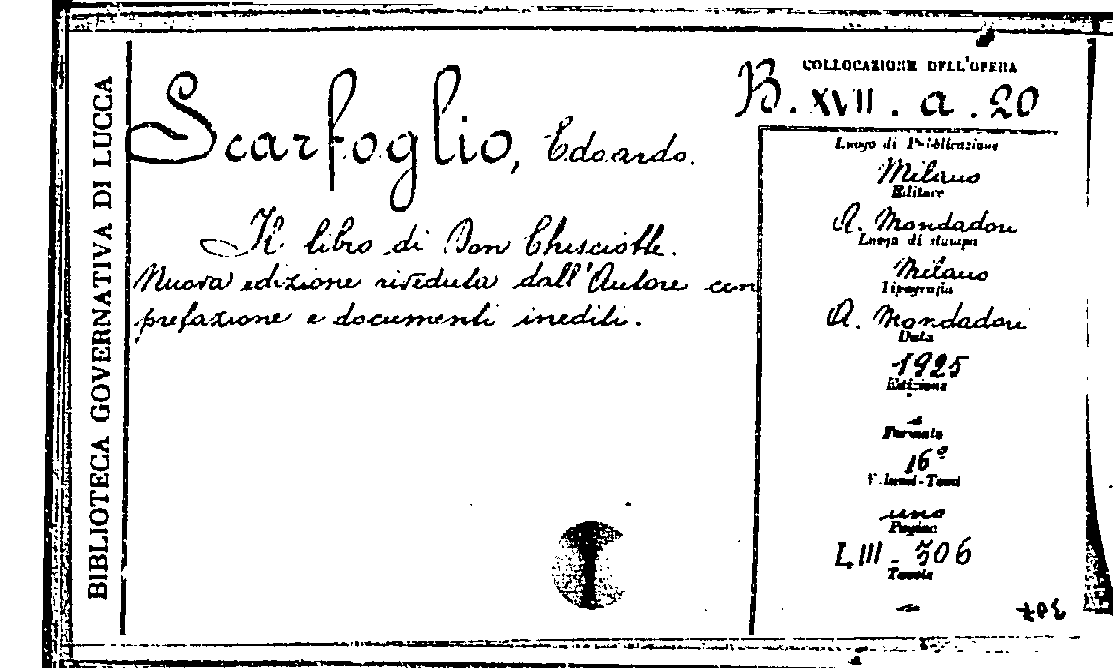 BIBLIOTECA GOVERNATIVA DI LUCCA
Scarfoglio, Edoardo.
Il libro di Don Chisciotte.
Nuova edizione riveduta dall'Autore con
prefazione e documenti inediti.
COLLOCAZIONE DELL'OPERA
B. XVII. a. 20
Luogo di Pubblicazione
Milano
Editore
A. Mondadori
Luogo di stampa
Milano
Tipografia
A. Mondadori
Data
1925
Edizione
Formato
16°
Volumi-Tomi
uno
Pagine
LIII - 306
Tavole